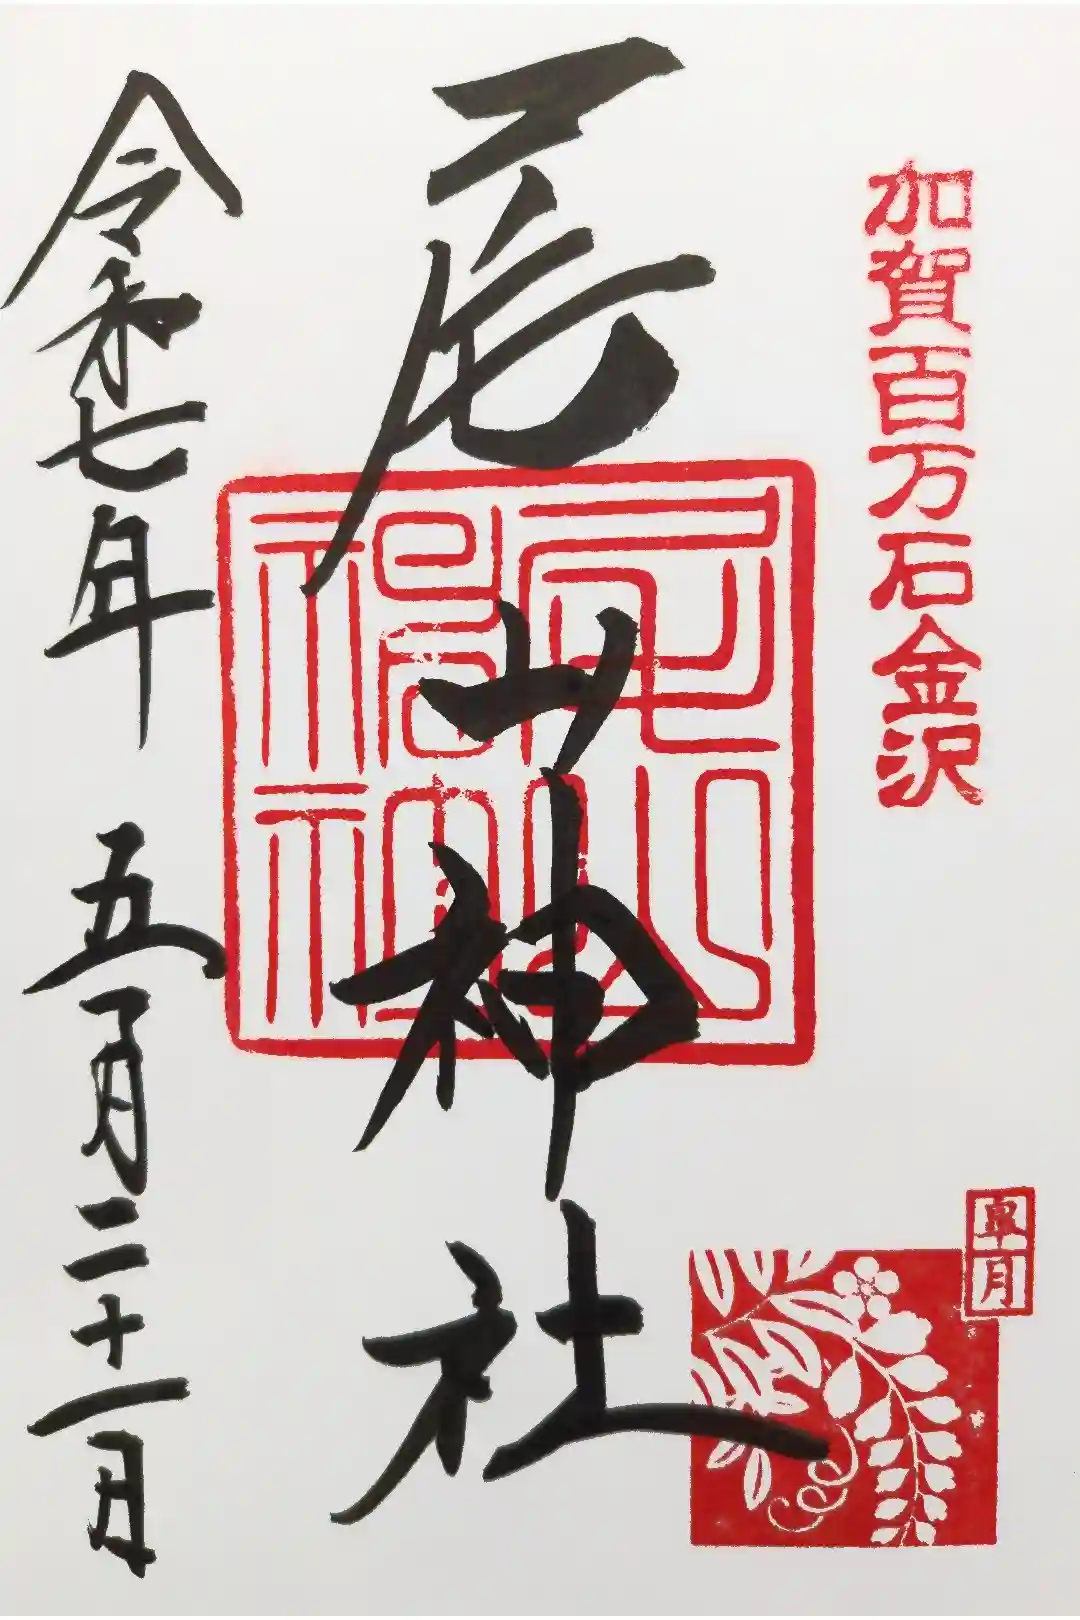 加賀百万石金沢
皐月
尾山神社
尾山神社
令和七年 五月二十一日